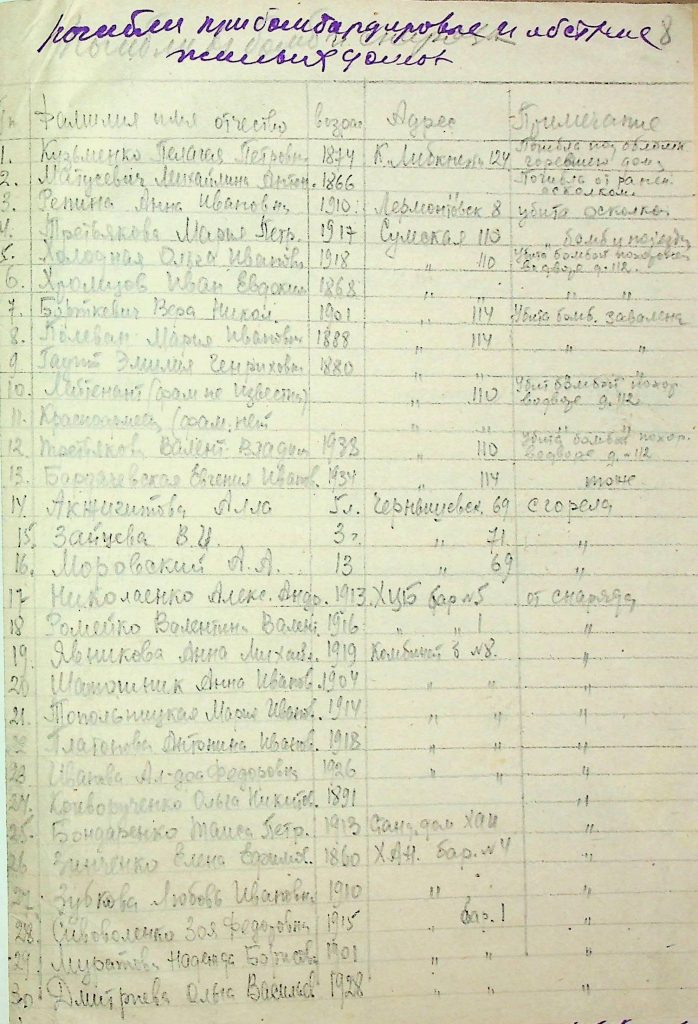 погибли при бомбардировке и обстреле 8
жилых домов
Фамилия имя отчество возрас Адрес Примечание
1. Кузьменко Пелагея Петровн 1874 К.Либкнехта 124 Погибла под обломк. горевшего дома
2. Матусевич Михайлина Антон. 1866 Погибла от ранен. осколком
3. Репина Анна Ивановн 1910 Лермонтовск 8 убита осколко
4. Третьякова Мария Петр. 1917 Сумская 110 „ бомбу
5. Холодная Ольга Ивановн 1918 „ 110 Убита бомбой похоронен во дворе д. 112.
6. Иван Евдоким 1868 „ „ „ „
7. Вера Никол. 1901 „ 114 Убита бомб. завалена
8. Полеван Мария Ивановн 1888 „ 114 „ „
9. Эмилия Генриховн 1880 „ „ „ „
10. Лейтенант (фам. не известна) „ 110 Убит бомбой похор во дворе д. 112
11. Красноармеец (фам. нет „ „ „ „
12. Третьяков Валент. Владим 1938 „ 110 Убита бомбой похор. во дворе д. 112
13. Евгения Иванов. 1937 „ 114 тоже
14. Акжигитова Алла 5л. Чернышевск. 69 сгорела
15. Зайцева В.И. 3 г. „ 71 „
16. Моровский А.А. 13 „ 69 „
17 Николаенко Алекс. Андр. 1913 бар №5 от снаряда
18 Ромейко Валентина Валент 1916 „ „ 1 „
19. Явникова Анна Михайл. 1919 Комбинат б №8. „
20 Шапошник Анна Иванов. 1904 „ „ „
21. Топольницкая Мария Иванов. 1914 „ „ „
22 Платонова Антонина Иванов. 1918 „ „ „
23 Иванова Ал-дра Федоровн 1926 „ „ „
24. Ольга Никитов. 1891 „
25. Бондаренко Таиса Петр. 1913 „
26 Зинченко Елена Ефимов. 1860 бар. №4 „
27. Зубкова Любовь Ивановн 1910 „ „ „
28. Сивоволенко Зоя Федоровн 1915 „ бар. 1 „
29. Муратова Надежда Борисов 1901 „ „ „
30 Дмитриева Ольга Васильев 1928 „ „ „